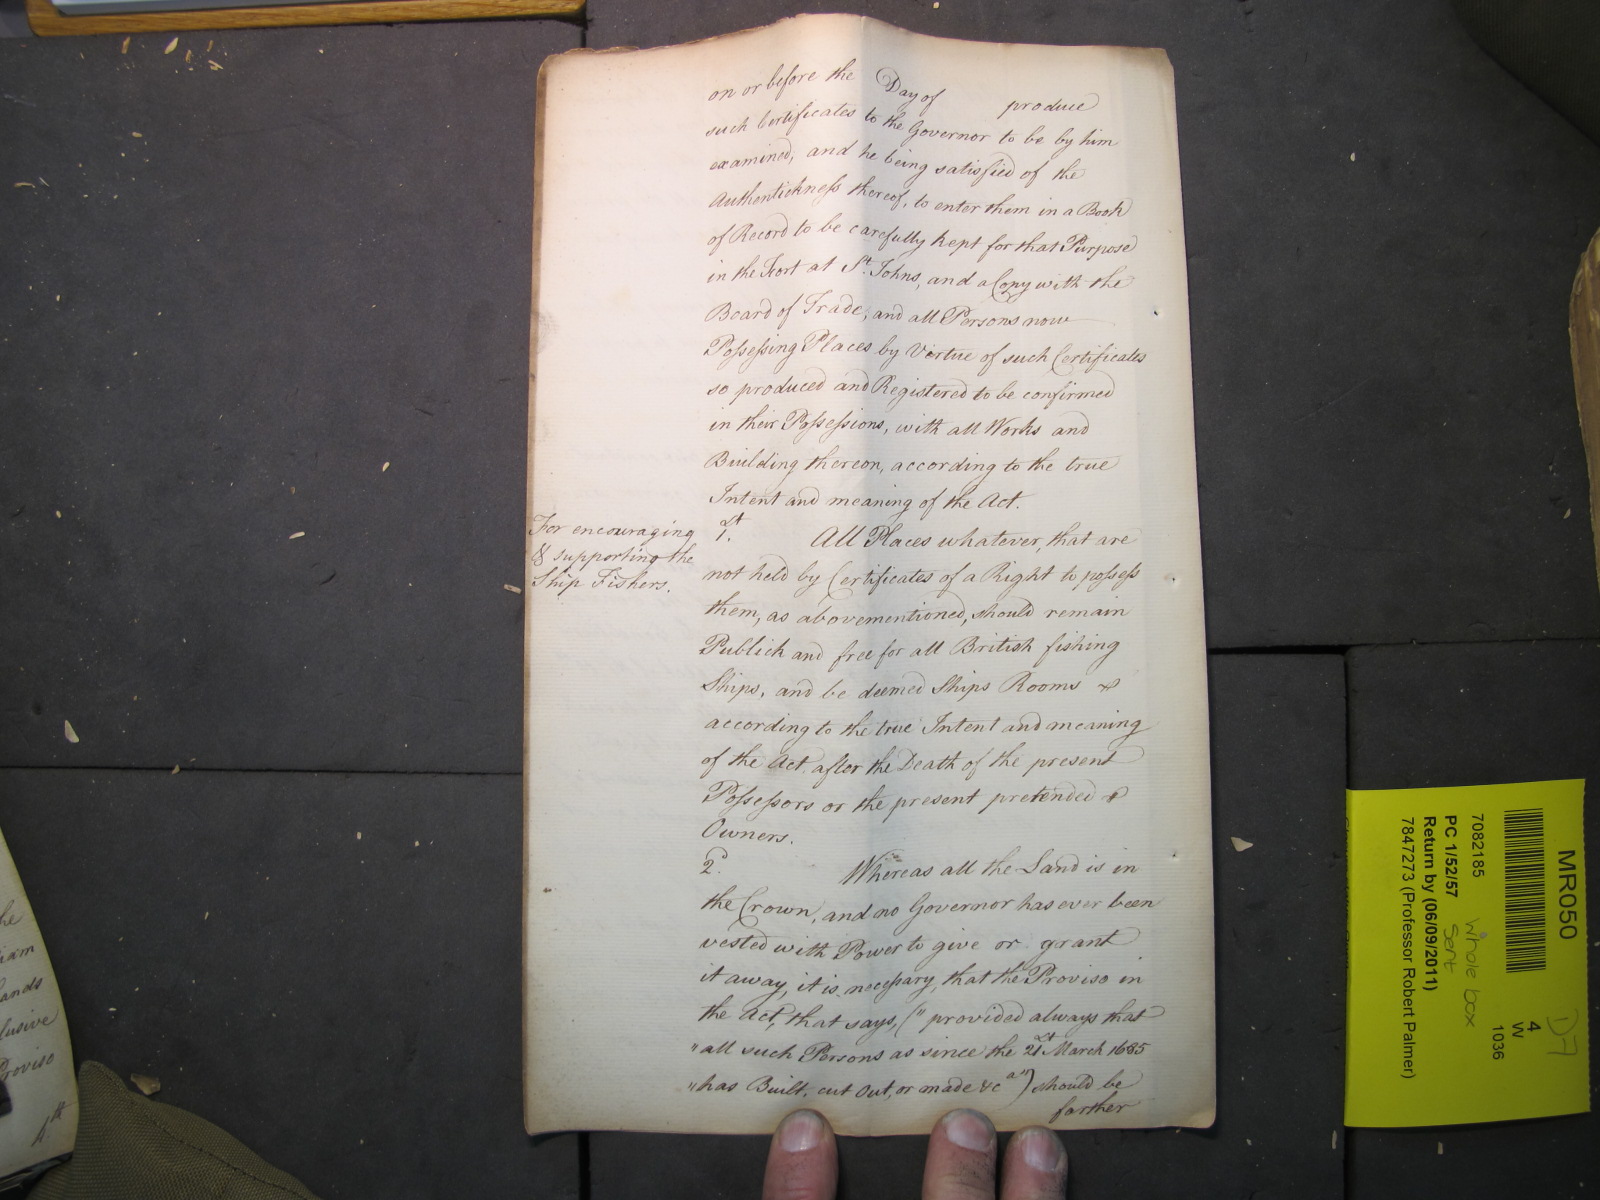 on or before the Day of produce
such Certificates to the Governor to be by him
examined, and he being satisfied of the
Authentickness thereof, to enter them in a Book
of Record to be carefully kept for that Purpose
in the Fort at St. Johns, and a Copy with the
Board of Trade, and all Persons now
Possessing Places by Virtue of such Certificates
so produced and Registered to be confirmed
in their Possessions, with all Works and
Building thereon, according to the true
Intent and meaning of the Act.
For encouraging
& supporting the
Ship Fishers.
1.st All Places whatever, that are
not held by Certificates of a Right to possess
them, as abovementioned, should remain
Publick and free for all British fishing
Ships, and be deemed Ships Rooms
according to the true Intent and meaning
of the Act, after the Death of the present
Possessors or the present pretended
Owners.
2.d Whereas all the Land is in
the Crown, and no Governor has ever been
vested with Power to give or grant
it away, it is necessary, that the Proviso in
the Act, that says, (" provided always that
" all such Persons as since the 21st March 1685
" has Built, cut Out, or made &ca") should be
farther
he
iam
ands
lusive
Proviso
4th
MR050
4
W
1036
7082185
PC 1/52/57
Return by (06/09/2011)
7847273 (Professor Robert Palmer)
Whole box
Sent